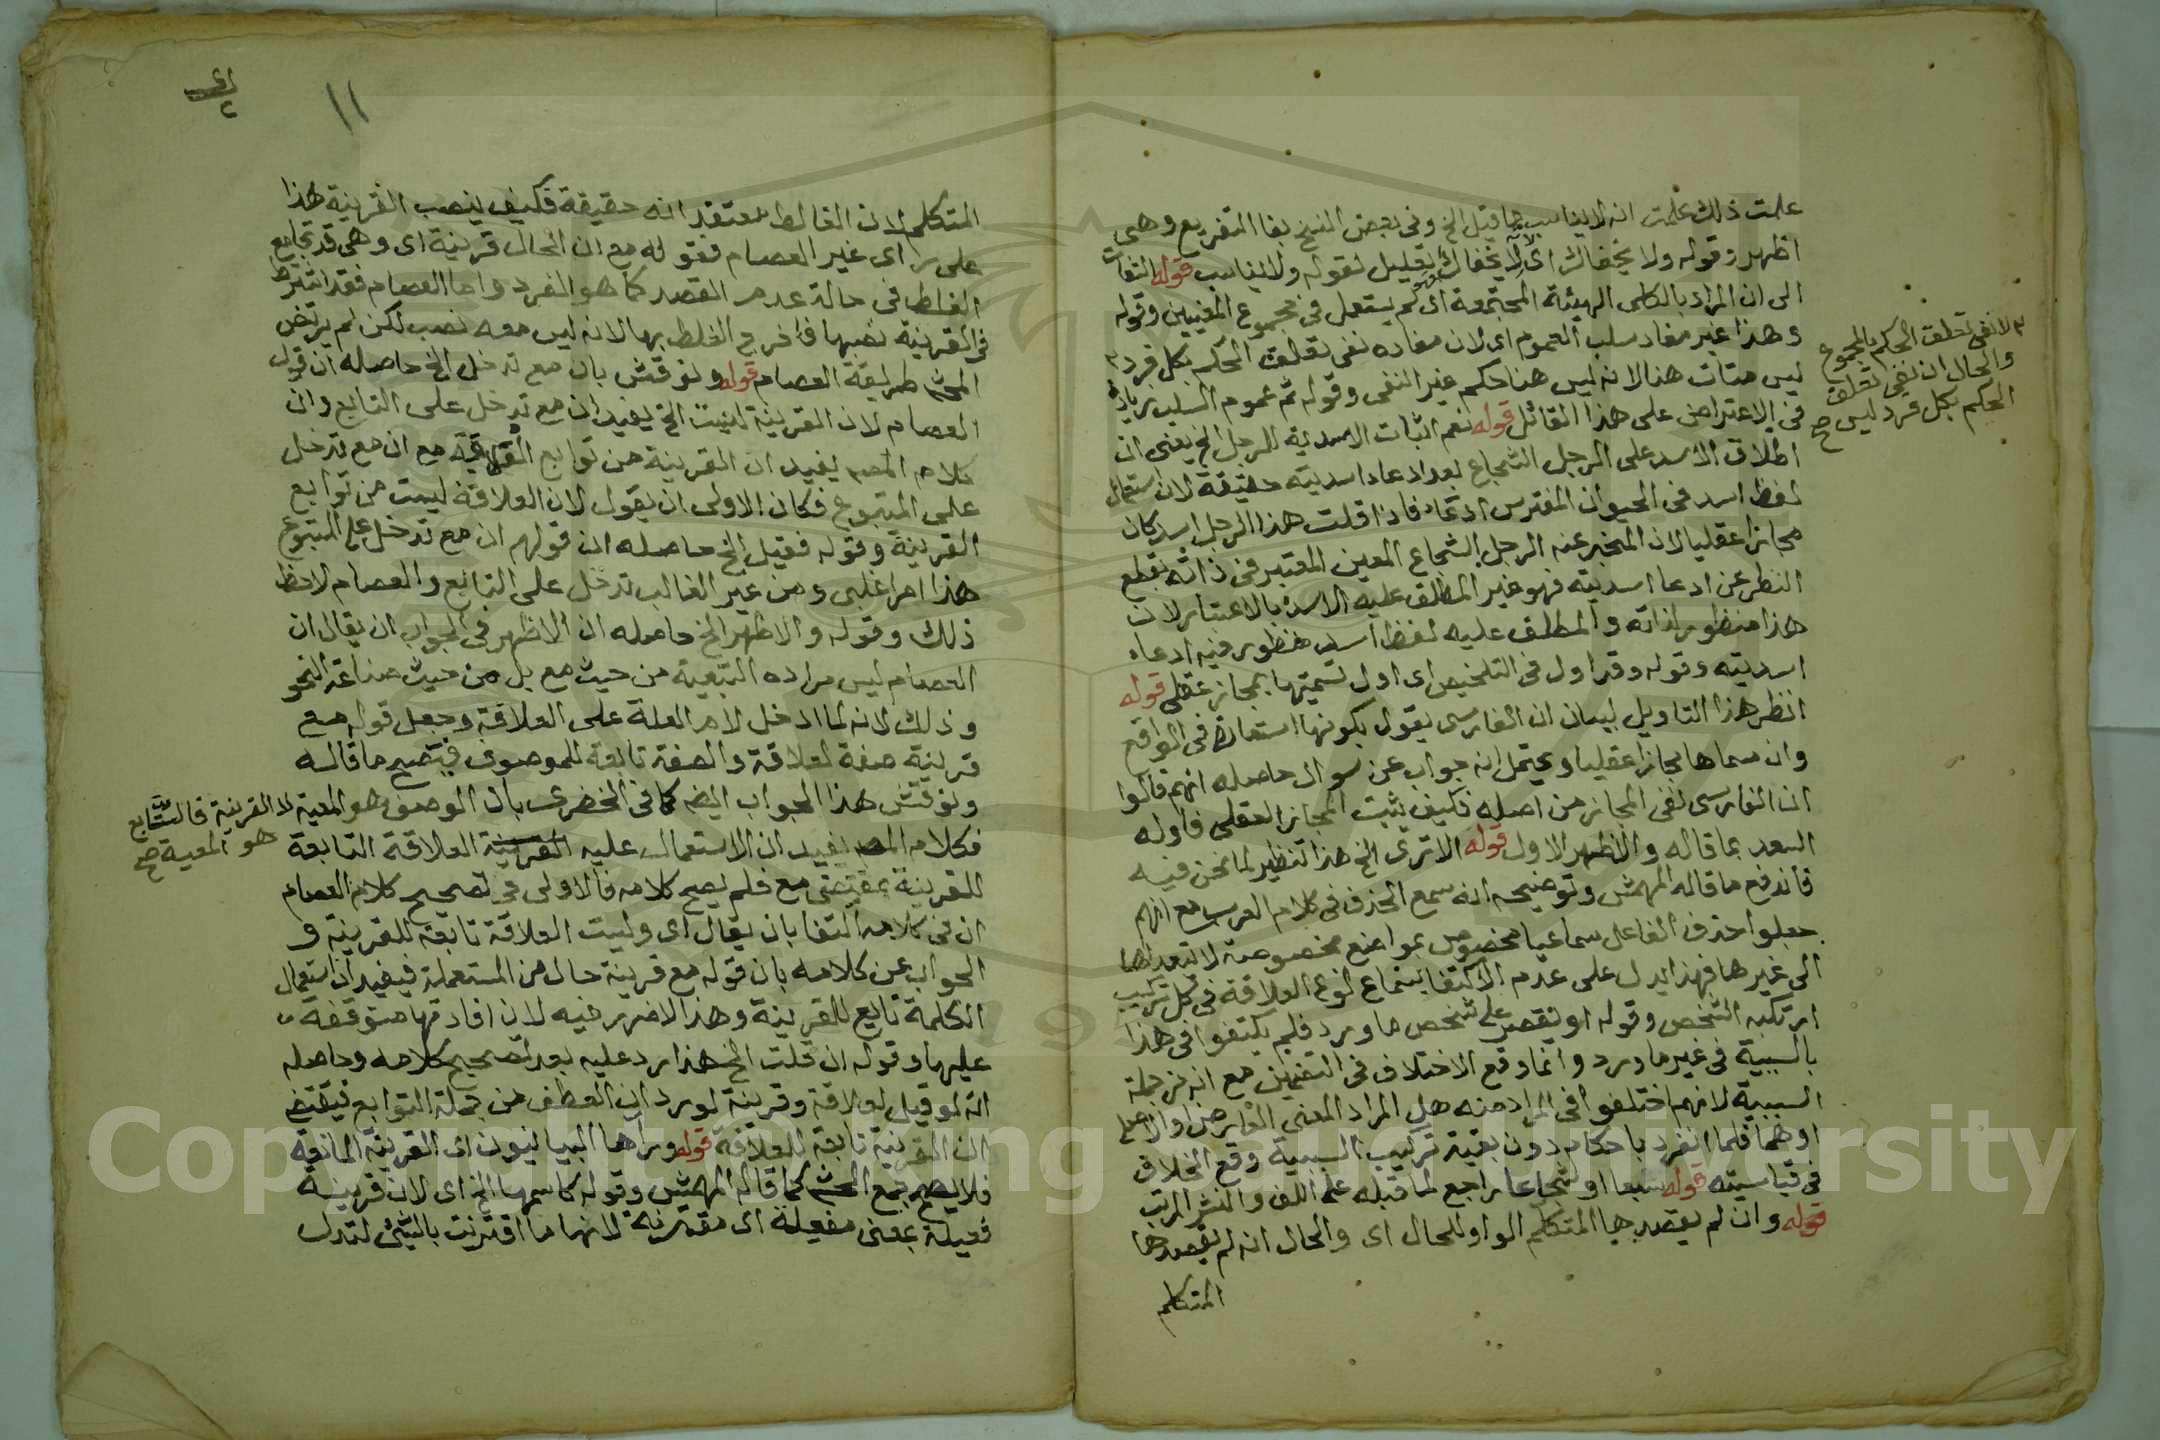 علمت ذلك علمت انه لا يناسب ما قيل الخ وفى بعض النسخ بفا التفريع وهى
اظهر وقوله ولا يخفاك اى لا يخفاك تعليل لقوله ولا يناسب قوله التفات
الى ان المراد بالكلى الهيئة المجتمعة اى لم يستعمل فى مجموع المعنيين وقوله
وهذا غير مفاد سلب العموم اى لان مفاده نفى تعلق الحكم بكل فرد
ليس متات هنا لانه ليس هنا حكم غير النفى وقوله ثم عموم السلب بزيادة
فى الاعتراض على هذا القائل قوله نعم اثبات الاسدية للرجل الخ يعنى ان
اطلاق الاسد على الرجل الشجاع بعد ادعاء اسديته حقيقة لان استعمال
لفظ اسد فى الحيوان المفترس ادعاء فاذا قلت هذا الرجل اسد كان
مجازا عقليا لان المخبر عنه الرجل الشجاع المعين المعتبر فى ذاته بقطع
النظر عن ادعا اسديته فهو غير المطلق عليه الاسد بالاعتبار لان
هذا منظور لذاته والمطلق عليه لفظ اسد منظور فيه ادعاء
اسديته وقوله وقد اول فى التلخيص اى اول تسميتها بمجاز عقلى قوله
انظر هذا التاويل لبيان ان الفارسى يقول بكونها استعارة فى الواقع
وان سماها مجازا عقليا ويحتمل انه جواب عن سوال حاصله انهم قالوا
ان الفارسى نفى المجاز من اصله فكيف يثبت المجاز العقلى فاوله
السعد بما قاله والاظهر الاول قوله الا ترى الخ هذا تنظير لما نحن فيه
فاندفع ما قاله المهمش وتوضيحه انه سمع الحذف فى كلام العرب مع انهم
جعلوا حذف الفاعل سماعيا مخصوص بمواضع مخصوصة لا تتعداها
الى غيرها فهذا يدل على عدم الاكتفا بسماع نوع العلاقة فى كل تركيب
ارتكبه الشخص وقوله او يقصر على شخص ما ورد فلم يكتفوا فى هذا
بالسببية فى غير ما ورد وانما وقع الاختلاف فى التضمين مع انه من جملة
السببية لانهم اختلفوا فى المراد منه هل المراد المعنى العارض او الاصلى
او هما فلما انفرد باحكام دون بقية تركيب السببية وقع الخلاف
فى قياسيته قوله سبعا او شجاعا راجع لما قبله على اللف والنشر المرتب
قوله وان لم يقصد بها المتكلم الواو للحال اى والحال انه لم يقصدها
المتكلم
لا نفى تعلق الحكم بالمجموع
والحال ان نفى تعلق
الحكم بكل فرد ليس صح
١١
المتكلم لان الغالط معتقد انه حقيقة فكيف ينصب القرينة هذا
على راى غير العصام فقوله مع ان الحال قرينة اى وهى قد تجامع
الغلط فى حالة عدم القصد كما هو المفرد واما العصام فقد اشترط
فى القرينة نصبها فاخرج الغلط بها لانه ليس معه نصب لكن لم يرتض
المحشى طريقة العصام قوله ونوقش بان مع تدخل الخ حاصله ان قول
العصام لان القرينة ليست الخ يفيد ان مع تدخل على التابع وان
كلام المصـ يفيد ان القرينة من توابع مع ان مع تدخل
على المتبوع فكان الاولى ان يقول لان العلاقة ليست من توابع
القرينة وقوله فقيل الخ حاصله ان قولهم ان مع تدخل على المتبوع
هذا امر اغلبى ومن غير الغالب تدخل على التابع والعصام لاحظ
ذلك وقوله والاظهر الخ حاصله ان الاظهر فى الجواب ان يقال ان
العصام ليس مراده التبعية من حيث مع بل من حيث صناعة النحو
وذلك لانه لما ادخل لام العلة على العلاقة وجعل قوله مع
قرينة صفة لعلاقة والصفة تابعة للموصوف فيتضح ما قاله
ونوقش هذا الجواب ايضا كما فى الخضرى بان الوصف هو المعية لا القرينة فالتابع
هو المعية صح
فكلام المصـ يفيد ان الاستعمال عليه القرينة العلاقة التابعة
للقرينة بمقتضى مع فلم يصح كلامه فالاولى فى تصحيح كلام العصام
ان فى كلامه اكتفا بان يقال اى وليست العلاقة تابعة للقرينة و
الجواب عن كلامه بان قوله مع قرينة حال من المستعملة فيفيد ان استعمال
الكلمة تابع للقرينة وهذا لا ضرر فيه لان افادتها متوقفة
عليها وقوله ان قلت الخ هذا رد عليه بعد تصحيح كلامه وحاصله
انه لو قيل لعلاقة وقرينة لورد ان العطف من جملة التوابع فيقتضى
ان القرينة تابعة للعلاقة قوله وراها البيانيون اى القرينة المانعة
فلا يصح جمع المحشى كما قاله المهمش وقوله كاسمها الخ اى لان قرينة
فعيلة بمعنى مفعولة اى مقترنة لانها ما اقترنت بالشئ لتدل
Copyright © King Saud University